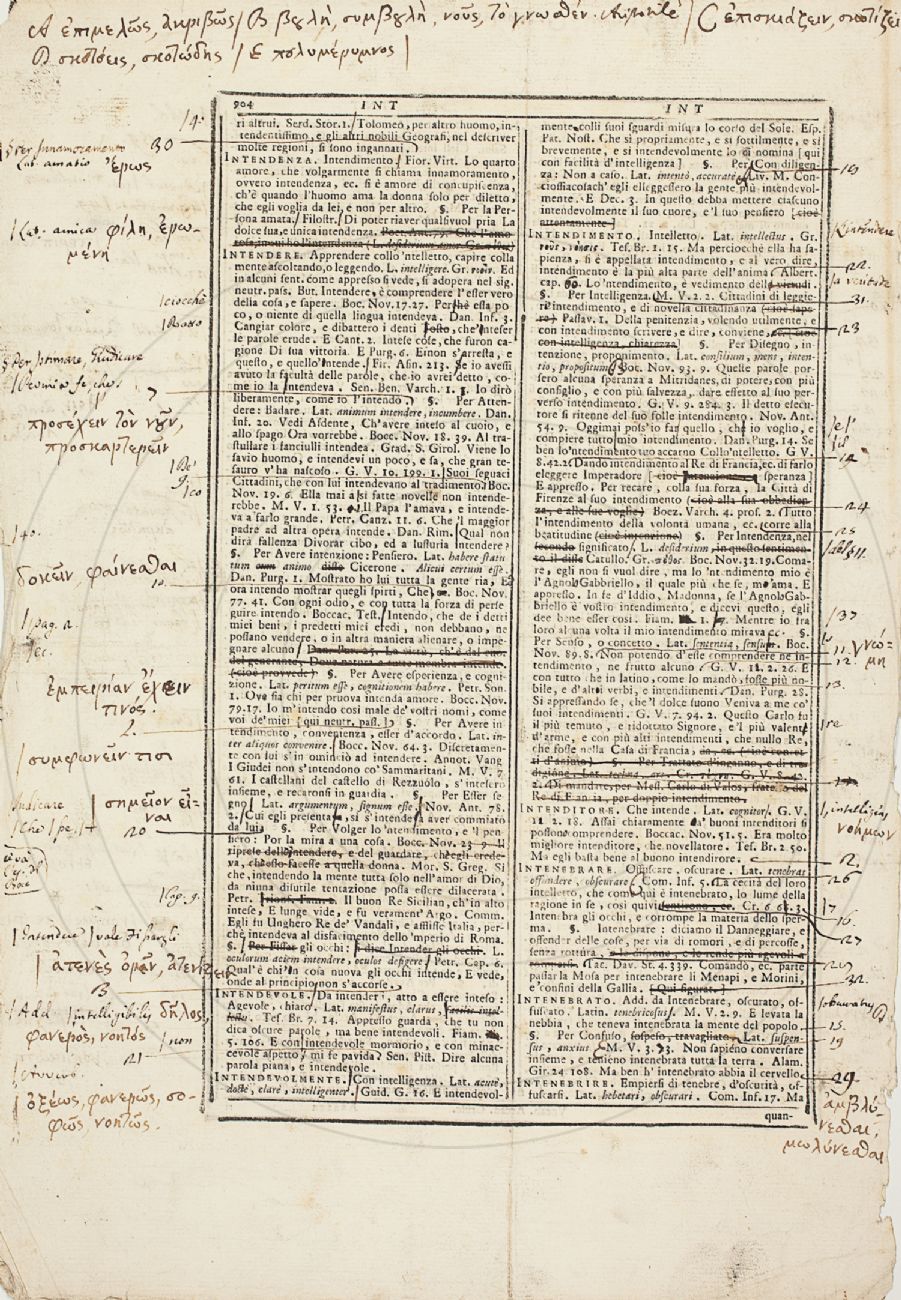 A ἐπιμελῶς, ἀκριβῶς / B βουλὴ, συμβουλὴ, νοῦς, τὸ γνωσθέν. / C ἐπισκιάζειν, σκοτίζειν
D σκοτόεις, σκοτώδης / E πολυμέριμνος /
904 INT
ri altrui. Serd. Stor. 1. Tolomeo, per altro huomo, in-
tendentissimo, e gli altri nobili Geografi, nel descriver
molte regioni, si sono ingannati.
INTENDENZA. Intendimento. Fior. Virt. Lo quarto
amore, che volgarmente si chiama innamoramento,
ovvero intendenza, ec. si è amore di concupiscenza,
ch'è quando l'huomo ama la donna solo per diletto,
che egli voglia da lei, e non per altro. §. Per la Per-
sona amata. Filostr. Di poter riaver qualsivuol pria La
dolce sua, e unica intendenza.
INTENDERE. Apprendere collo 'ntelletto, capire colla
mente ascoltando, o leggendo. L. intelligere. Gr. νοεῖν. Ed
in alcuni sent. come appresso si vede, si adopera nel sig.
neutr. pass. But. Intendere, è comprendere l'esser vero
della cosa, e sapere. Boc. Nov. 17. 27. Perchè essa po-
co, o niente di quella lingua intendeva. Dan. Inf. 3.
Cangiar colore, e dibattero i denti Tosto, che 'nteser
le parole crude. E Cant. 2. Intese cose, che furon ca-
gione Di sua vittoria. E Purg. 6. Ei non s'arresta, e
questo, e quello intende. Fir. Asin. 213. Se io avessi
avuto la facultà delle parole, che io avrei detto, co-
me io la intendeva. Sen. Ben. Varch. 1. 3. Io dirò
liberamente, come io l'intendo. §. Per Atten-
dere: Badare. Lat. animum intendere, incumbere. Dan.
Inf. 20. Vedi Asdente, Ch'avere inteso al cuoio, e
allo spago Ora vorrebbe. Bocc. Nov. 18. 39. Al tra-
stullare i fanciulli intendea. Grad. S. Girol. Viene lo
savio huomo, e intendevi un poco, e sa, che gran te-
sauro v'ha nascoso. G. V. 10. 199. 1. Suoi seguaci
Cittadini, che con lui intendevano al tradimento. Boc.
Nov. 19. 6. Ella mai a sì fatte novelle non intende-
rebbe. M. V. 1. 53. Il Papa l'amava, e intende-
va a farlo grande. Petr. Canz. 11. 6. Che 'l maggior
padre ad altra opera intende. Dan. Rim. Qual non
dirà fallenza Divorar cibo, ed a lussuria intendere?
§. Per Avere intenzione: Pensiero. Lat. habere statu-
tum cum animo disse Cicerone. Alicui certum esse.
Dan. Purg. 1. Mostrato ho lui tutta la gente ria, E
ora intendo mostrar quegli spirti, Che, ec. Boc. Nov.
77. 41. Con ogni odio, e con tutta la forza di perse-
guire intendo. Boccac. Test. Intendo, che de i detti
miei beni, i predetti miei eredi, non debbano, ne
possano vendere, o in altra maniera alienare, o impe-
gnare alcuno.
§. Per Avere esperienza, e cogni-
zione. Lat. peritum esse, cognitionem habere. Petr. Son.
1. Ove sia chi per pruova intenda amore. Bocc. Nov.
79. 17. Io m'intendo così male de' vostri nomi, come
voi de' miei [qui neutr. pass.] §. Per Avere in-
tendimento, convenienza, esser d'accordo. Lat. in-
ter aliquos convenire. Bocc. Nov. 64. 3. Discretamen-
te con lui s'incominciò ad intendere. Annot. Vang
I Giudei non s'intendono co' Sammaritani. M. V. 7
61. I castellani del castello di Rezzuolo, s'intesero
insieme, e recaronsi in guardia. §. Per Esser se-
gno. Lat. argumentum, signum esse. Nov. Ant. 78.
2. Cui egli presenta, sì s'intende aver commiato
da lui. §. Per Volger lo 'ntendimento, e 'l pen-
siero: Por la mira a una cosa. Bocc. Nov. 23. 9. Il
riprese dello intendere, e del guardare, che egli crede-
va, che esso facesse a quella donna. Mor. S. Greg. Sì
che, intendendo la mente tutta solo nell'amor di Dio,
da niuna disutile tentazione possa essere dilacerata.
Petr. Trionf. Fam. 2. Il buon Re Sicilian, ch'in alto
intese, E lunge vide, e fu verament'Argo. Comm.
Egli fu Unghero Re de' Vandali, e afflisse Italia, per-
chè intendeva al disfacimento dello 'mperio di Roma.
§. Per Fissar gli occhi: si dice Intender gli occhi. L.
oculorum aciem intendere, oculos defigere. Petr. Cap. 6.
Qual'è chi 'n cosa nuova gli occhi intende, E vede,
onde al principio non s'accorse.
INTENDEVOLE. Da intender, atto a essere inteso:
Agevole, chiaro. Lat. manifestus, clarus,
Tes. Br. 7. 14. Appresso guarda, che tu non
dica oscure parole, ma bene intendevoli. Fiam.
5. 106. E con intendevole mormorio, e con minac-
cevole aspetto, mi fe pavida? Sen. Pist. Dire alcuna
parola piana, e intendevole.
INTENDEVOLMENTE. Con intelligenza. Lat. acutè,
doctè, clarè, intelligenter. Guid. G. 16. E intendevol-
INT
mente colli suoi sguardi misura lo corso del Sole. Esp.
Pat. Nost. Che sì propriamente, e sì sottilmente, e sì
brevemente, e sì intendevolmente lo ci nomina [qui
con facilità d'intelligenza] §. Per Con diligen-
za: Non a caso. Lat. intentè, accuratè. Liv. M. Con-
ciossiacosach'egli eleggessero la gente più intendevol-
mente. E Dec. 3. In questo debba mettere ciascuno
intendevolmente il suo cuore, e 'l suo pensiero [cioè
attentamente]
INTENDIMENTO. Intelletto. Lat. intellectus. Gr.
νοῦς, νόησις. Tes. Br. 1. 15. Ma perciocchè ella ha sa-
pienza, si è appellata intendimento, e al vero dire,
intendimento è la più alta parte dell'anima. Albert.
cap. 60. Lo 'ntendimento, è vedimento delle virtudi.
§. Per Intelligenza. M. V. 2. 2. Cittadini di leggie-
re intendimento, e di novella cittadinanza (cioè sape-
re) Passav. 1. Della penitenzia, volendo utilmente, e
con intendimento scrivere, e dire, conviene, ec. [cioè
con intelligenza, chiarezza] §. Per Disegno, in-
tenzione, proponimento. Lat. consilium, mens, inten-
tio, propositum. Bot. Nov. 93. 9. Quelle parole por-
sero alcuna speranza a Mitridanes, di potere, con più
consiglio, e con più salvezza, dare effetto al suo per-
verso intendimento. G. V. 9. 284. 3. Il detto esecu-
tore si ritenne del suo folle intendimento. Nov. Ant.
54. 9. Oggimai pois'io far quello, che io voglio, e
compiere tutto mio intendimento. Dan. Purg. 14. Se
ben lo 'ntendimento tuo accarno Collo 'ntelletto. G. V
8. 42. 2. Dando intendimento al Re di Francia, ec. di farlo
eleggere Imperadore [cioè intenzione, speranza]
E appresso. Per recare, colla sua forza, la Città di
Firenze al suo intendimento (cioè alla sua obbedien-
za, e alle sue voglie) Boez. Varch. 4. prof. 2. Tutto
l'intendimento della volontà umana, ec. correre alla
beatitudine (cioè intenzione) §. Per Intendenza, nel
secondo significato. L. desiderium, in questo sentimen-
to il disse Catullo. Gr. πόθος. Boc. Nov. 32. 19. Coma-
re, egli non si vuol dire, ma lo 'ntendimento mio è
l'Agnolo Gabbriello, il quale più che se, m'ama. E
appresso. In fe d'Iddio, Madonna, se l'Agnolo Gab-
briello è vostro intendimento, e dicevi questo, egli
dee bene esser così. Fiam. 1. 7. Mentre io fra
loro al una volta il mio intendimento mirava ec. §.
Per Senso, o concetto. Lat. sententia, sensus. Boc.
Nov. 89. 8. Non potendo d'esse comprendere ne in-
tendimento, ne frutto alcuno. G. V. 11. 2. 26. E
con tutto che in latino, come lo mandò, fosse più no-
bile, e d'altri verbi, e intendimenti. Dan. Purg. 28.
Sì appressando se, che 'l dolce suono Veniva a me co'
suoi intendimenti. G. V. 7. 94. 2. Questo Carlo fu
il più temuto, e ridottato Signore, e 'l più valente
d'arme, e con più alti intendimenti, che nullo Re,
che fosse nella Casa di Francia,
§. Per Trattato d'inganno, e di tra-
digione.
2. Di mandare, per Mess. Carlo di Valos, frate o del
Re di Francia, per doppio intendimento.
INTENDITORE. Che intende. Lat. cognitor. G. V.
11. 2. 18. Assai chiaramente a' buoni intenditori si
possono comprendere. Boccac. Nov. 51. 5. Era molto
migliore intenditore, che novellatore. Tes. Br. 2. 50.
Ma egli basta bene al buono intendirore.
INTENEBRARE. Offuscare, oscurare. Lat. tenebras
offundere, obscurare. Com. Inf. 5. La cecità del loro
intelletto, che com' qui è intenebrato, lo lume della
ragione in se, così quivi Cr. 6. 68. 3.
Intenebra gli occhi, e corrompe la materia dello sper-
ma. §. Intenebrare: diciamo il Danneggiare, e
offender delle cose, per via di romori, e di percosse,
senza rottura,
Tac. Dav. St. 4. 339. Comandò, ec. parte
passar la Mosa per intenebrare li Menapi, e Morini,
e confini della Gallia. [Qui figurat.]
INTENEBRATO. Add. da Intenebrare, oscurato, of-
fuscato. Latin. tenebricosus. M. V. 2. 9. E levata la
nebbia, che teneva intenebrata la mente del popolo.
§. Per Confuso, sospeso, travagliato. Lat. suspen-
sus, anxius. M. V. 3. 73. Non sapieno conversare
insieme, e tenieno intenebrata tutta la terra. Alam.
Gir. 24. 108. Ma ben h' intenebrato abbia il cervello.
INTENEBRIRE. Empiersi di tenebre, d'oscurità, of-
fuscarsi. Lat. hebetari, obscurari. Com. Inf. 17. Ma
quan-
30
§ Per Innamoramento
Lat. amatio Ἔρως
Lat. amica φίλη, ἐρω-
μένη
ciocchè
προσέχειν τὸν νοῦν,
προσκαρτερεῖν
δοκεῖν, φαίνεσθαι
10.
ἐμπειρίαν, ἔχειν
τινός.
συμφωνεῖν τισι
σημεῖον εἶ-
ναι
20
ἀτενὲς ὁρᾶν, ἀτενίζειν
B
Add intelligibilis, δῆλος,
φανερὸς, νοητός
non
21
ὀξέως, φανερῶς, σο-
φῶς νοητῶς.
22.
31.
23
24
25
37
11. γνώ-
μη
12.
13.
intelligens,
νοήμων
12.
26
17
16.
27
32.
15.
19
29.
ἀμβλύ-
νεσθαι,
μωλύνεσθαι